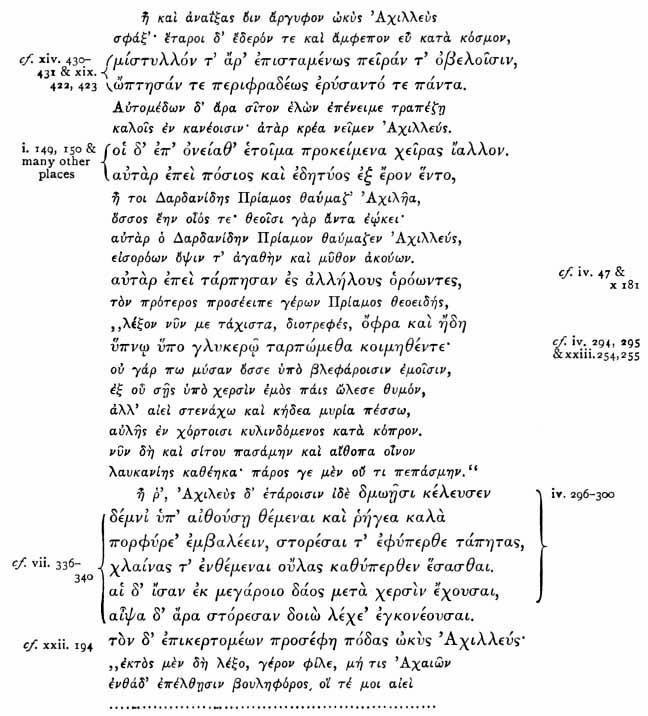 ἦ καὶ ἀναΐξας ὄϊν ἄργυφον ὠκὺς Ἀχιλλεὺς
σφάξ’· ἕταροι δ’ ἔδερόν τε καὶ ἄμφεπον εὖ κατὰ κόσμον,
cf. xiv. 430–
431 & xix.
422, 423
μίστυλλόν τ’ ἄρ’ ἐπισταμένως πεῖράν τ’ ὀβελοῖσιν,
ὤπτησάν τε περιφραδέως ἐρύσαντό τε πάντα.
Αὐτομέδων δ’ ἄρα σῖτον ἑλὼν ἐπένειμε τραπέζῃ
καλοῖς ἐν κανέοισιν· ἀτὰρ κρέα νεῖμεν Ἀχιλλεύς.
i. 149, 150 &
many other
places
οἱ δ’ ἐπ’ ὀνείαθ’ ἑτοῖμα προκείμενα χεῖρας ἴαλλον.
αὐτὰρ ἐπεὶ πόσιος καὶ ἐδητύος ἐξ ἔρον ἕντο,
ἦ τοι Δαρδανίδης Πρίαμος θαύμαζ’ Ἀχιλῆα,
ὅσσος ἔην οἷός τε· θεοῖσι γὰρ ἄντα ἐῴκει·
αὐτὰρ ὁ Δαρδανίδην Πρίαμον θαύμαζεν Ἀχιλλεύς,
εἰσορόων ὄψιν τ’ ἀγαθὴν καὶ μῦθον ἀκούων.
αὐτὰρ ἐπεὶ τάρπησαν ἐς ἀλλήλους ὁρόωντες,
cf. iv. 47 &
x 181
τὸν πρότερος προσέειπε γέρων Πρίαμος θεοειδής,
„λέξον νῦν με τάχιστα, διοτρεφές, ὄφρα καὶ ἤδη
ὕπνῳ ὕπο γλυκερῷ ταρπώμεθα κοιμηθέντε·
cf. iv. 294, 295
& xxiii. 254, 255
οὐ γάρ πω μύσαν ὄσσε ὑπὸ βλεφάροισιν ἐμοῖσιν,
ἐξ οὗ σῇς ὑπὸ χερσὶν ἐμὸς πάϊς ὤλεσε θυμόν,
ἀλλ’ αἰεὶ στενάχω καὶ κήδεα μυρία πέσσω,
αὐλῆς ἐν χόρτοισι κυλινδόμενος κατὰ κόπρον.
νῦν δὴ καὶ σίτου πασάμην καὶ αἴθοπα οἶνον
λαυκανίης καθέηκα· πάρος γε μὲν οὔ τι πεπάσμην.“
ἦ ῥ’, Ἀχιλεὺς δ’ ἑτάροισιν ἰδὲ δμωῇσι κέλευσεν
iv. 296–300
δέμνι’ ὑπ’ αἰθούσῃ θέμεναι καὶ ῥήγεα καλὰ
πορφύρε’ ἐμβαλέειν, στορέσαι τ’ ἐφύπερθε τάπητας,
cf. vii. 336–
340
χλαίνας τ’ ἐνθέμεναι οὔλας καθύπερθεν ἕσασθαι.
αἱ δ’ ἴσαν ἐκ μεγάροιο δάος μετὰ χερσὶν ἔχουσαι,
αἶψα δ’ ἄρα στόρεσαν δοιὼ λέχε’ ἐγκονέουσαι.
cf. xxii. 194
τὸν δ’ ἐπικερτομέων προσέφη πόδας ὠκὺς Ἀχιλλεύς·
„ἐκτὸς μὲν δὴ λέξο, γέρον φίλε, μή τις Ἀχαιῶν
ἐνθάδ’ ἐπέλθῃσιν βουληφόρος, οἵ τέ μοι αἰεὶ